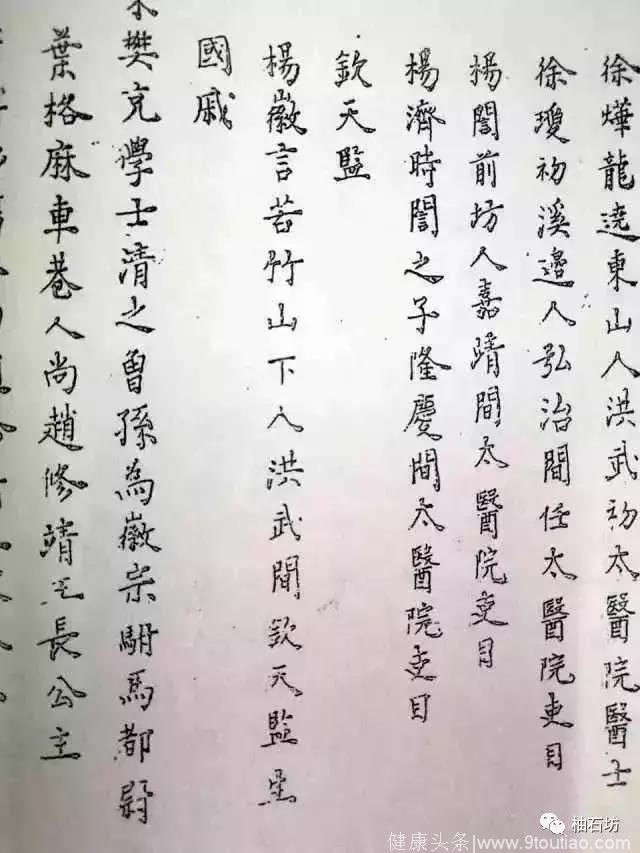 徐燁龍遶東山人洪武初太醫院醫士
徐瓊初溪邉人弘治間任太醫院吏目
楊誾前坊人嘉靖間太醫院吏目
楊濟時誾之子隆慶間太醫院吏目
欽天監
楊徽言苦竹山下人洪武間欽天監
國戚
樊克學士清之曾孫為徽宗駙馬都尉
葉格麻車巷人尚趙修靖長公主
柚石坊
健康头条/www.9toutiao.com